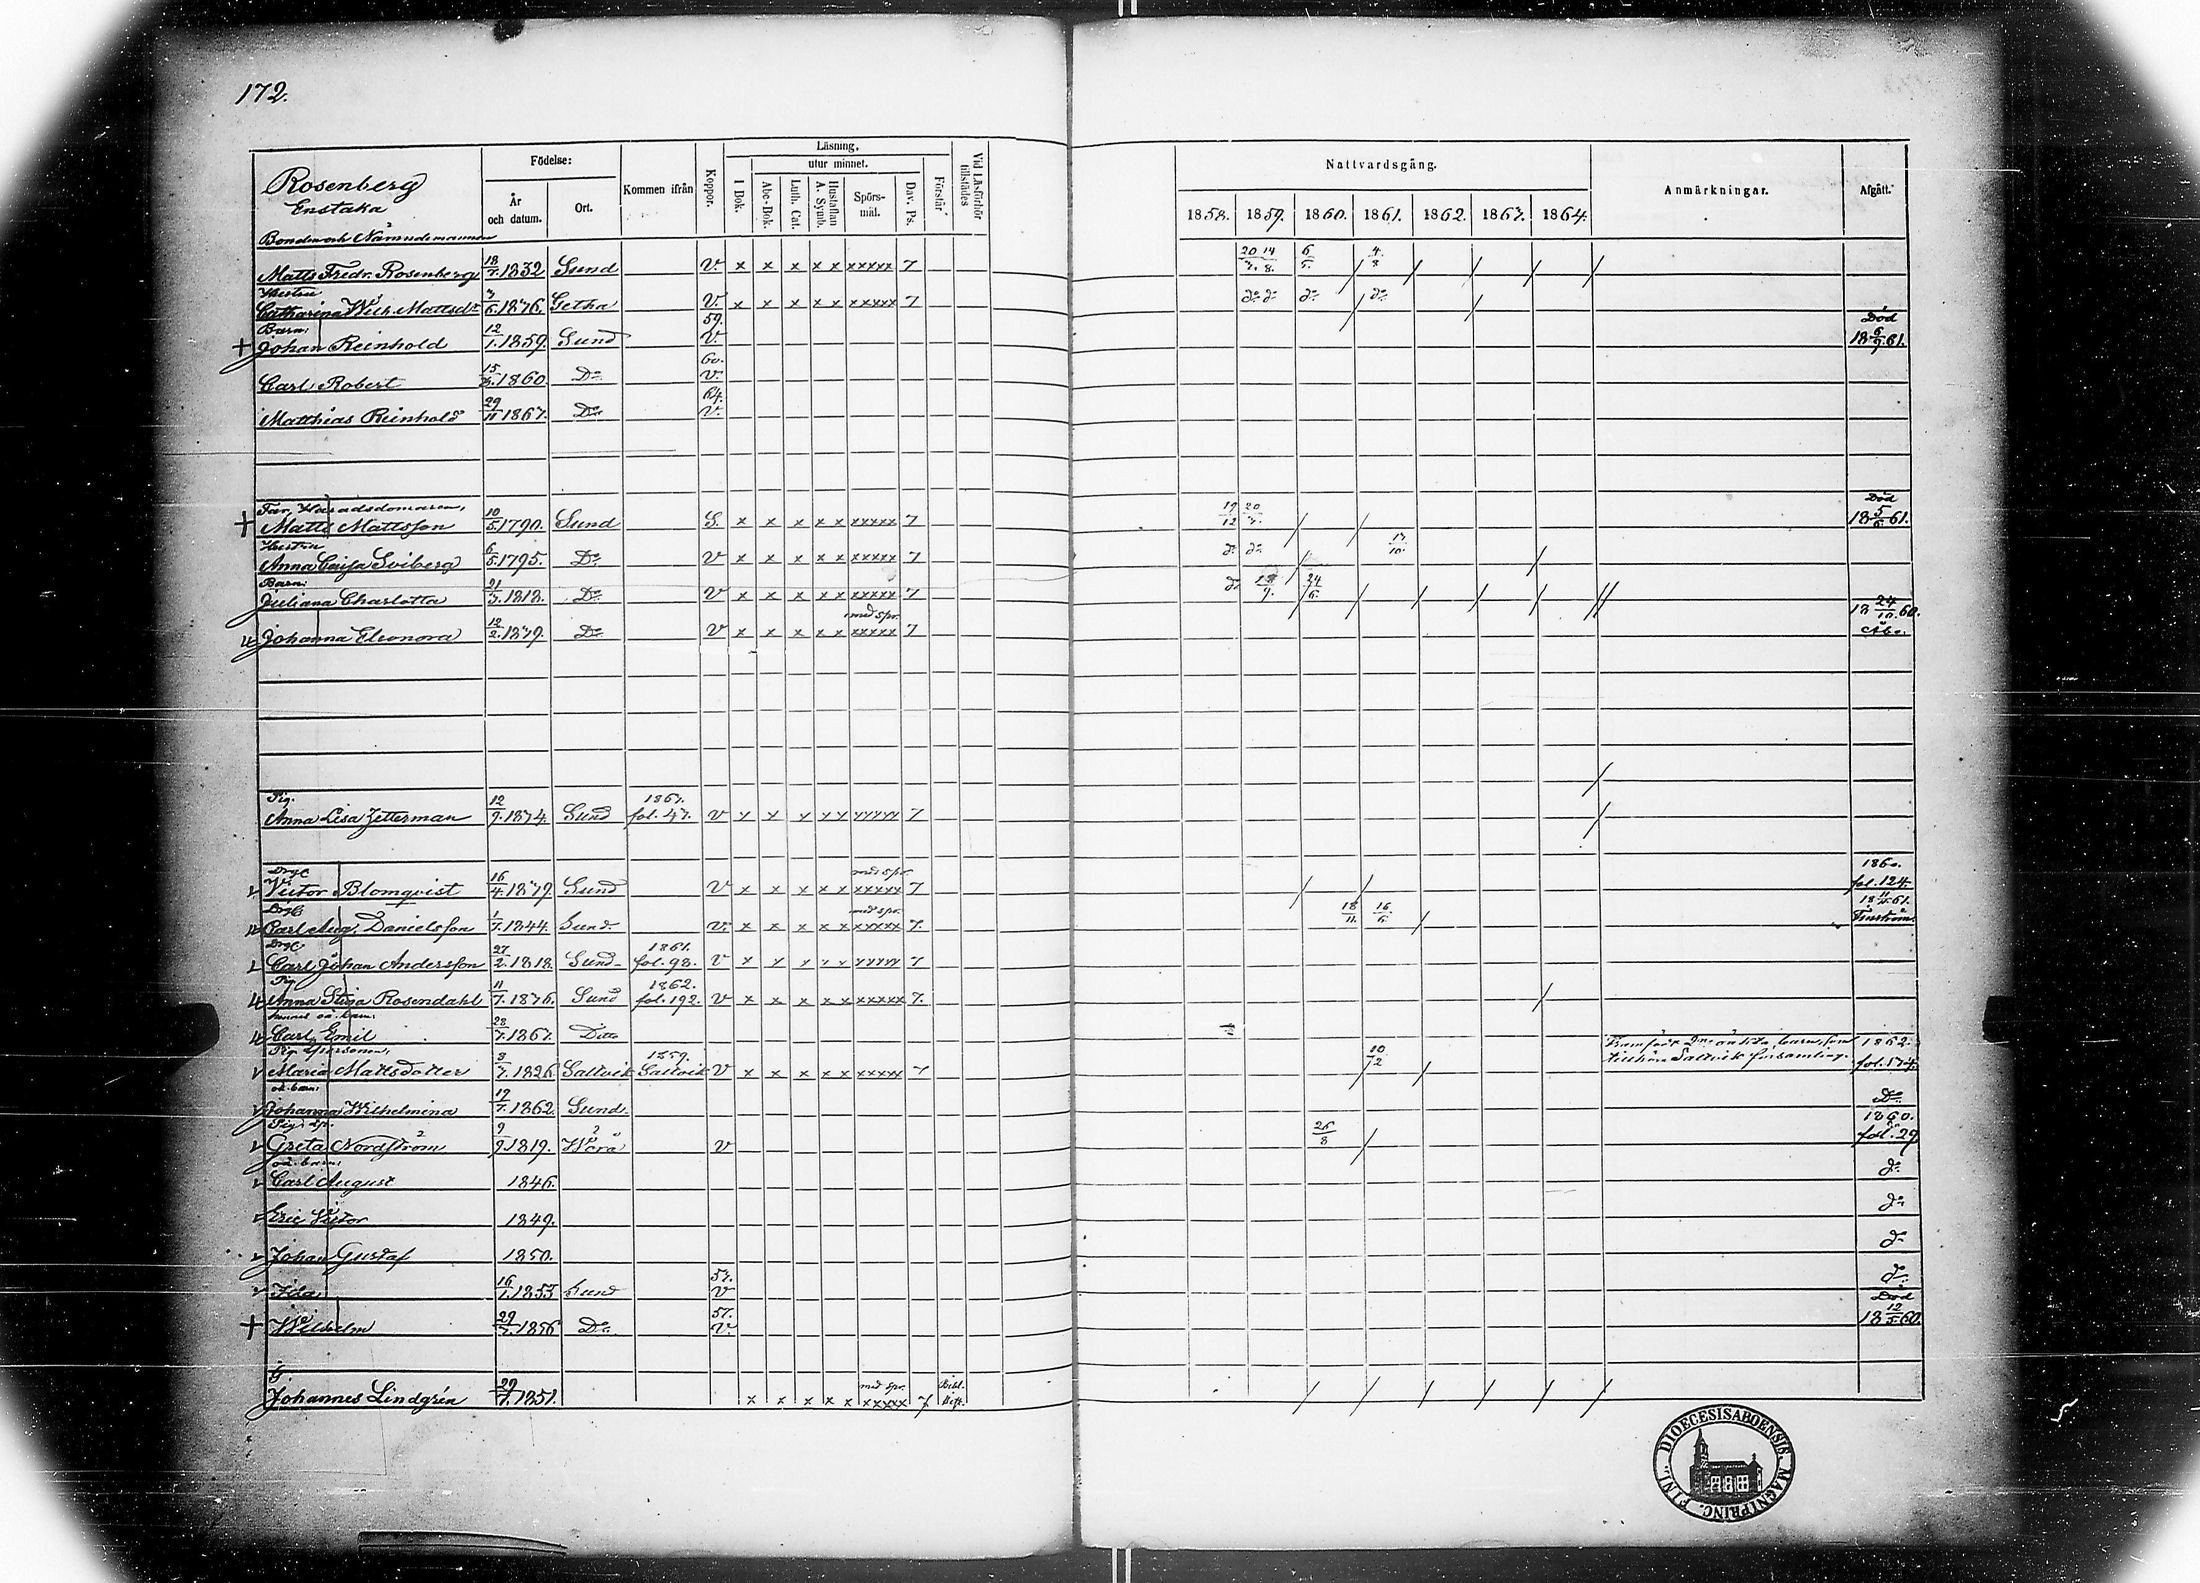 172.
Rosenberg
Enstaka
Födelse: Läsning,
utur minnet.
År och datum. Ort. Kommen ifrån Koppor. I Bok. Abc-Bok. Luth. Cat. Hustaflan A. Symb. Spörs-mål. Dav. Ps. Förstår Vid Läsförhör tillstädes
Nattvardsgång. Anmärkningar. Afgått.
1858. 1859. 1860. 1861. 1862. 1863. 1864.
Bonden och Nämndemannen
Matts Fredr. Rosenberg 18/7. 1832 Sund V. x x x x x xxxxx 7 20/3. 14/8. 6/5. 4/8
Hustru
Catharina Wilh. Mattsdr 1836. Getha V. x x x x x xxxxx 7 do do do do
Barn:
+ Johan Reinhold 12/1. 1859. Sund 59. V. Död 18 6/9. 61.
Carl Robert 1860. Do 60. V.
Matthias Reinhold 29/11 1863. Do 64. V.
Far, Häradsdomaren,
+ Matts Mattsson 10/5. 1790. Sund S. x x x x x xxxxx 7 19/12 20/3. Död 18 5/6. 61.
Hustru
Anna Caisa Sviberg 6/5. 1795. Do V x x x x x xxxxx 7 do do 13/10.
Barn:
Juliana Charlotta 21/3. 1818. Do V x x x x x xxxxx 7 do 18/9. 24/6.
Johanna Eleonora 12/2. 1839. Do V x x x x x med spr. xxxxx 7 18 24/10. 60. Åbo.
Pig.
Anna Lisa Zetterman 12/9. 1834 Sund 1863. fol. 47. V x x x x x xxxxx 7
Drg
Victor Blomqvist 16/4. 1839 Sund V x x x x x med spr. xxxxx 7 1860. fol. 124.
Drg
Carl Aug. Danielsson 1/7. 1844. Sund V. x x x x x med spr. xxxxx 7. 18/11. 16/6. 61. Finström.
Drg
Carl Johan Andersson 27/2. 1818. Sund 1861. fol. 98. V x x x x x xxxxx 7
Pig
Anna Stina Rosendahl 11/7. 1836. Sund 1862. fol. 192. V x x x x x xxxxx 7.
Carl Emil 28/7. 1863. Ditto
Maria Mattsdotter 8/7. 1826 Saltvik 1859. Saltvik V x x x x x xxxxx 7 10/2 Framfödt oäkta barn, som tillhöra Saltvik församling. 1862.
oä. barn:
Johanna Wilhelmina 17/7. 1862 Sund. Do
Greta Nordström 9/9. 1819. Wörå V 26/8 1860. fol. 29
oä. barn:
Carl August 1846. do
Eric Victor 1849. do
Johan Gustaf 1850. do
Ida 16/1. 1853 Sund 57. V do
+ Wilhelm 29/7. 1856 Do 57. V. Död 18 12/5. 60.
G.
Johannes Lindgrén 29/7. 1851. x x x x x med spr. xxxxx 7 Bibl. Hist.
DIOECESIS ABOENSIS. MAGNI PRINC. FINL.